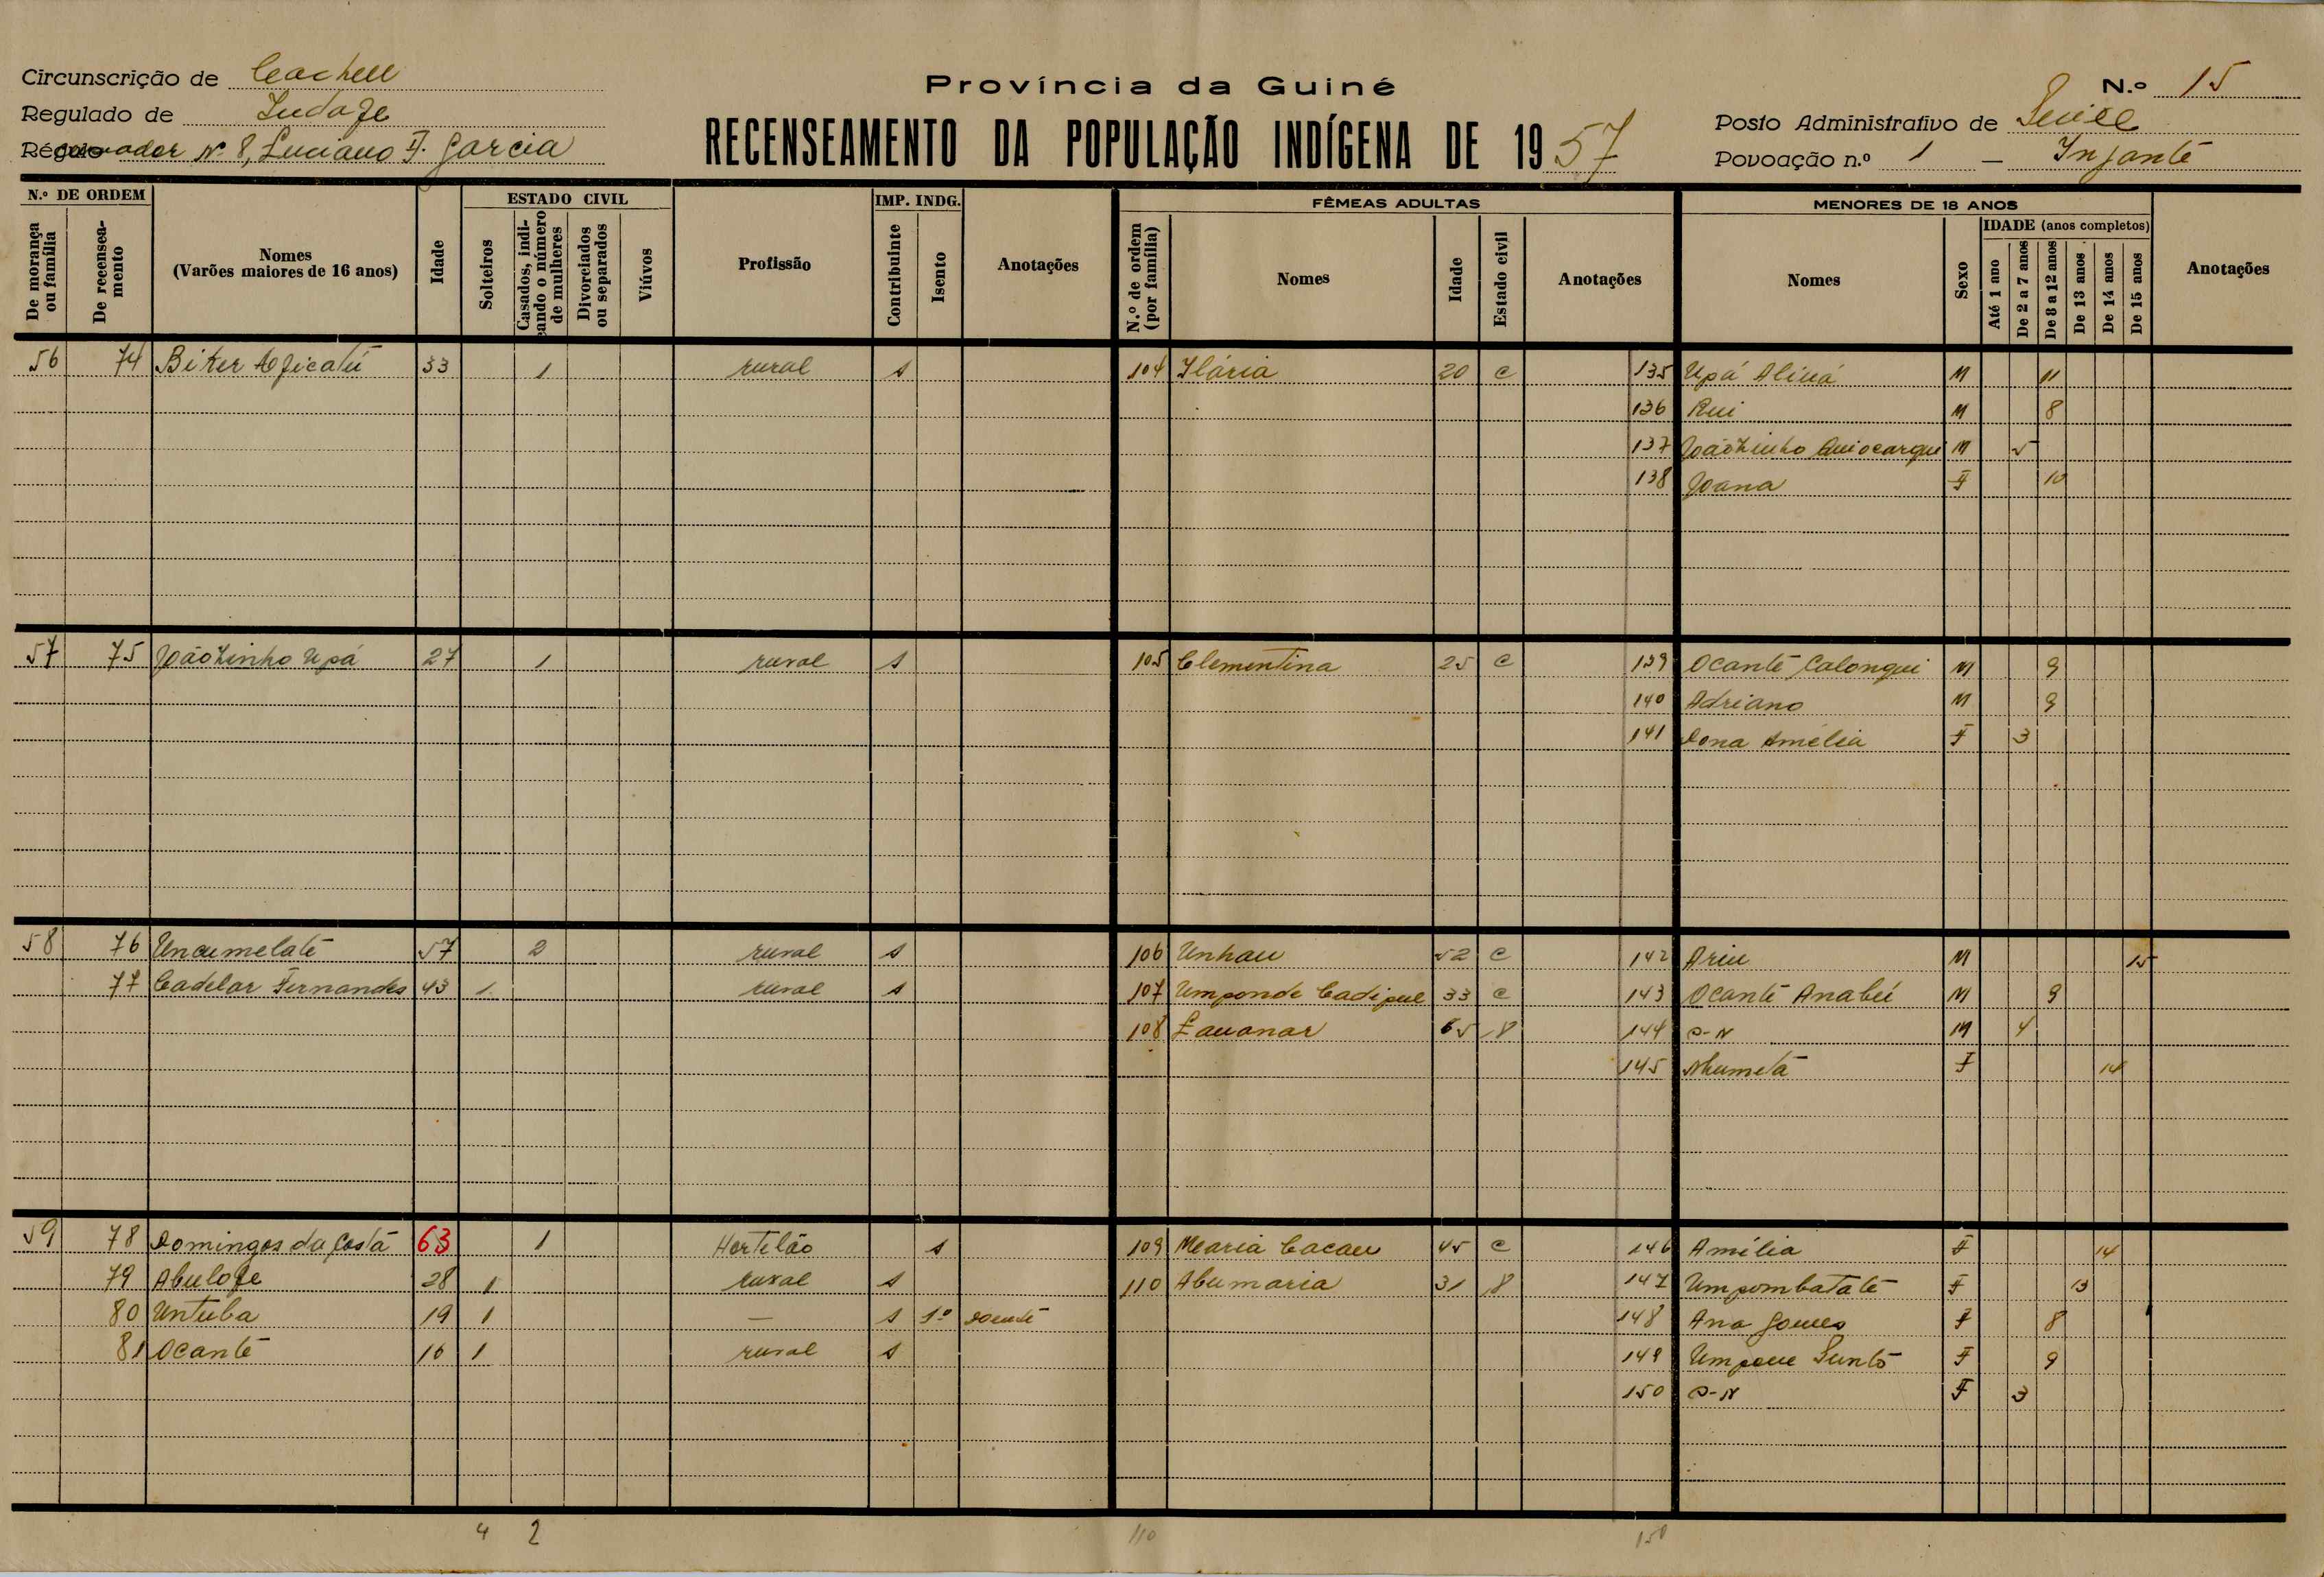 Circunscrição de Cacheu
Província da Guiné
N.º 15
Regulado de
RECENSEAMENTO DA POPULAÇÃO INDÍGENA DE 1957
Posto Administrativo de
Régulo N.º 8, Luciano F. Garcia
Povoação n.º 1 – Injanté
N.º DE ORDEM
De morança ou família
De recenseamento
Nomes
(Varões maiores de 16 anos)
Idade
ESTADO CIVIL
Solteiros
Casados, indicando o número de mulheres
Divorciados ou separados
Viúvos
Profissão
IMP. INDG.
Contribuinte
Isento
Anotações
FÊMEAS ADULTAS
N.º de ordem (por família)
Nomes
Idade
Estado civil
Anotações
MENORES DE 18 ANOS
Nomes
Sexo
IDADE (anos completos)
Até 1 ano
De 2 a 7 anos
De 8 a 12 anos
De 13 anos
De 14 anos
De 15 anos
Anotações
56 74 Biker 33 1 rural 1 104 Ilária 20 C 135 Upá Aliuá M 11
136 Rui M 8
137 Joãozinho Quiocarqui M 5
138 Joana F 10
57 75 Joãozinho Upá 27 1 rural 1 105 Clementina 25 C 139 Ocanté Calonqui M 9
140 Adriano M 9
141 Dona Amélia F 3
58 76 Uncumelaté 57 2 rural 1 106 Unhau 52 C 142 Ariu M 15
77 Cadelar Fernandes 43 1 rural 1 107 Umponde Cadipul 33 C 143 Ocanté Anabú M 9
108 65 144 S-N M 4
145 Nhumetá F 14
59 78 Domingos da Costa 63 1 Hortelão 1 109 Maria Cacau 45 C 146 Amélia F 14
79 Abulofe 28 1 rural 1 110 Abumaria 31 147 Umpombataté F 13
80 Untuba 19 1 — 1 1º doente 148 Ana Gomes F 8
81 Ocanté 16 1 rural 1 149 F 9
150 S-N F 3
4 2 110 150